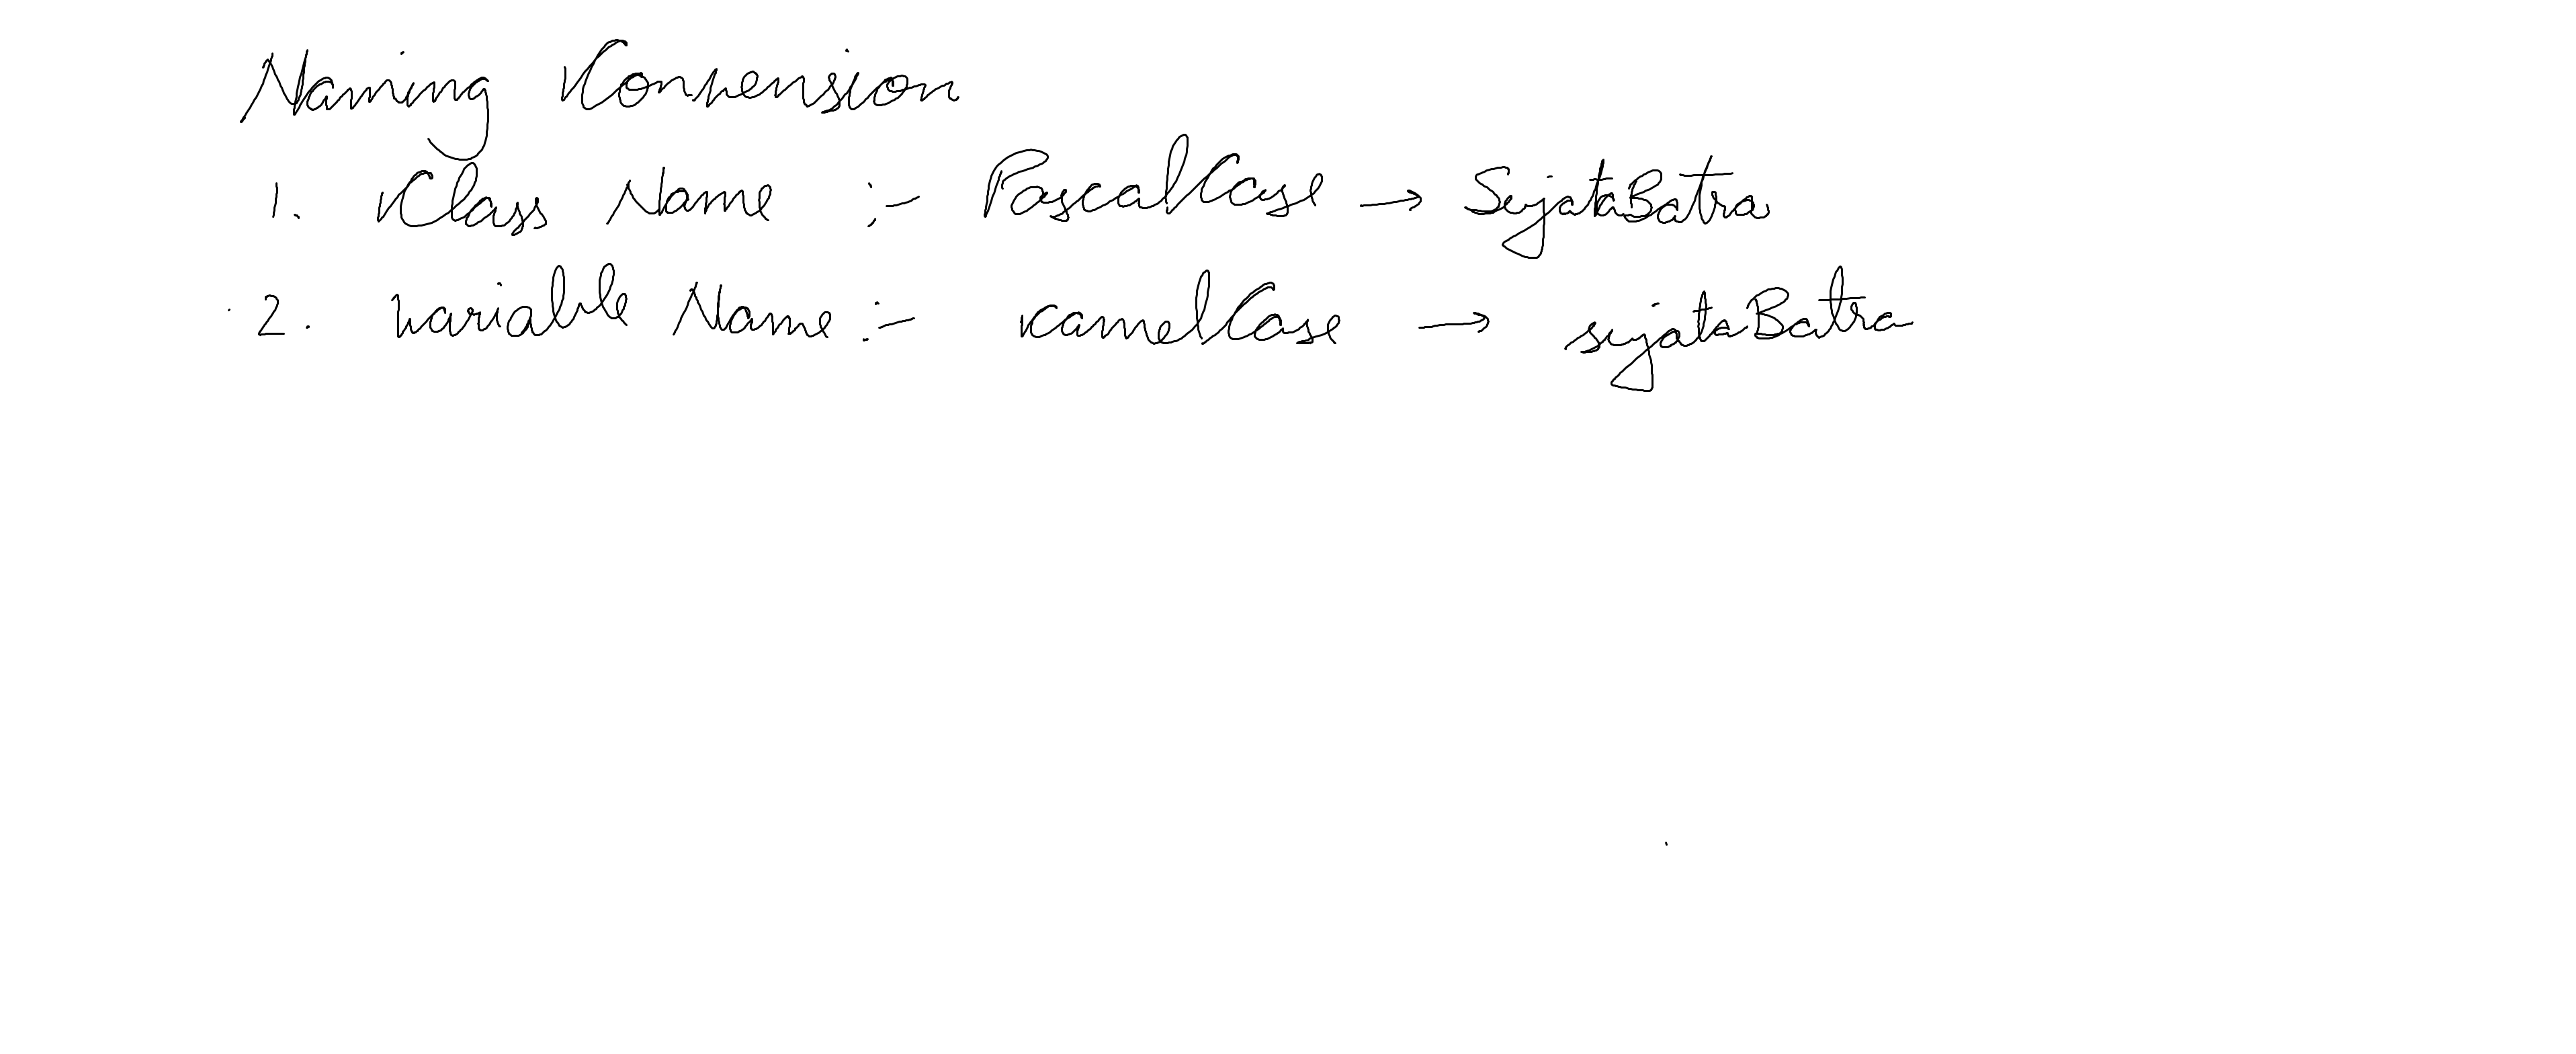 Naming Convension
1. Class Name :- PascalCase → SujataBatra
2. variable Name :- camelCase → sujataBatra